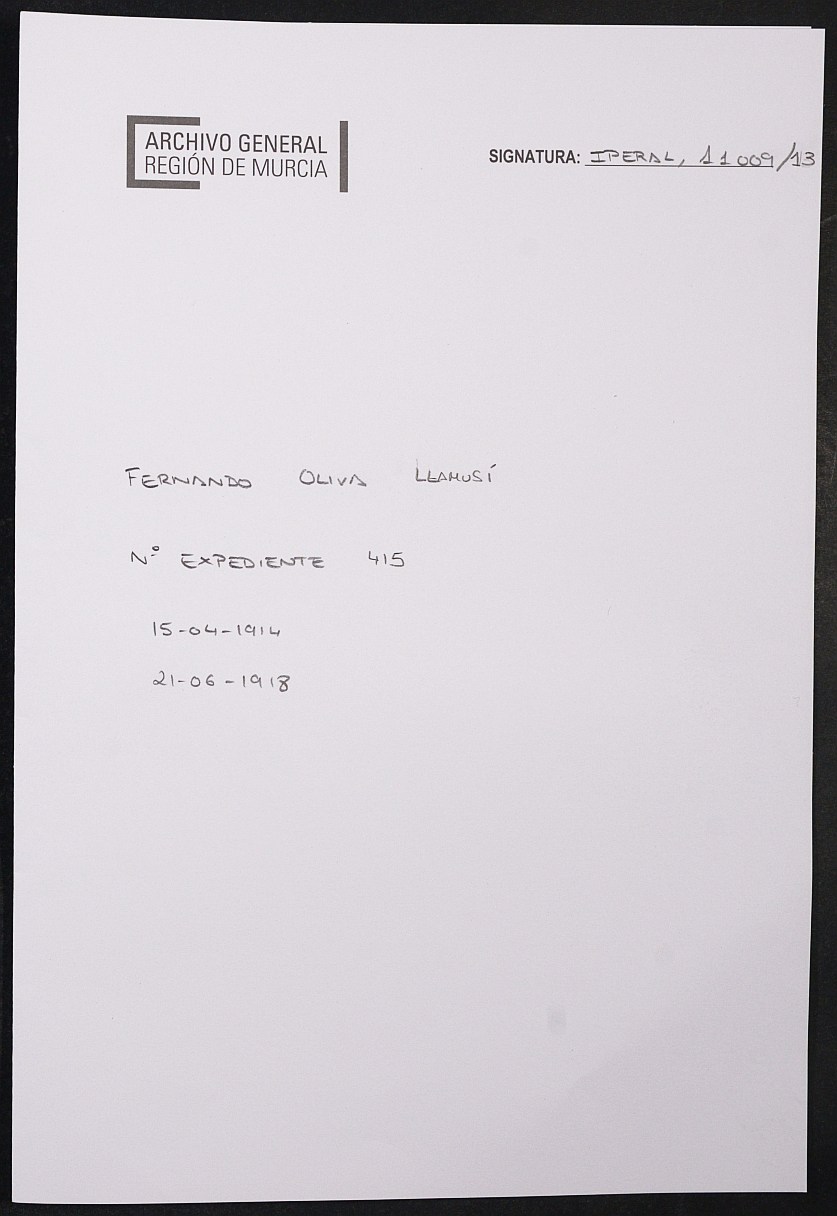 ARCHIVO GENERAL
REGIÓN DE MURCIA
SIGNATURA: IPERAL, 11009/13
FERNANDO OLIVA LLAMUSÍ
Nº EXPEDIENTE 415
15-04-1914
21-06-1918